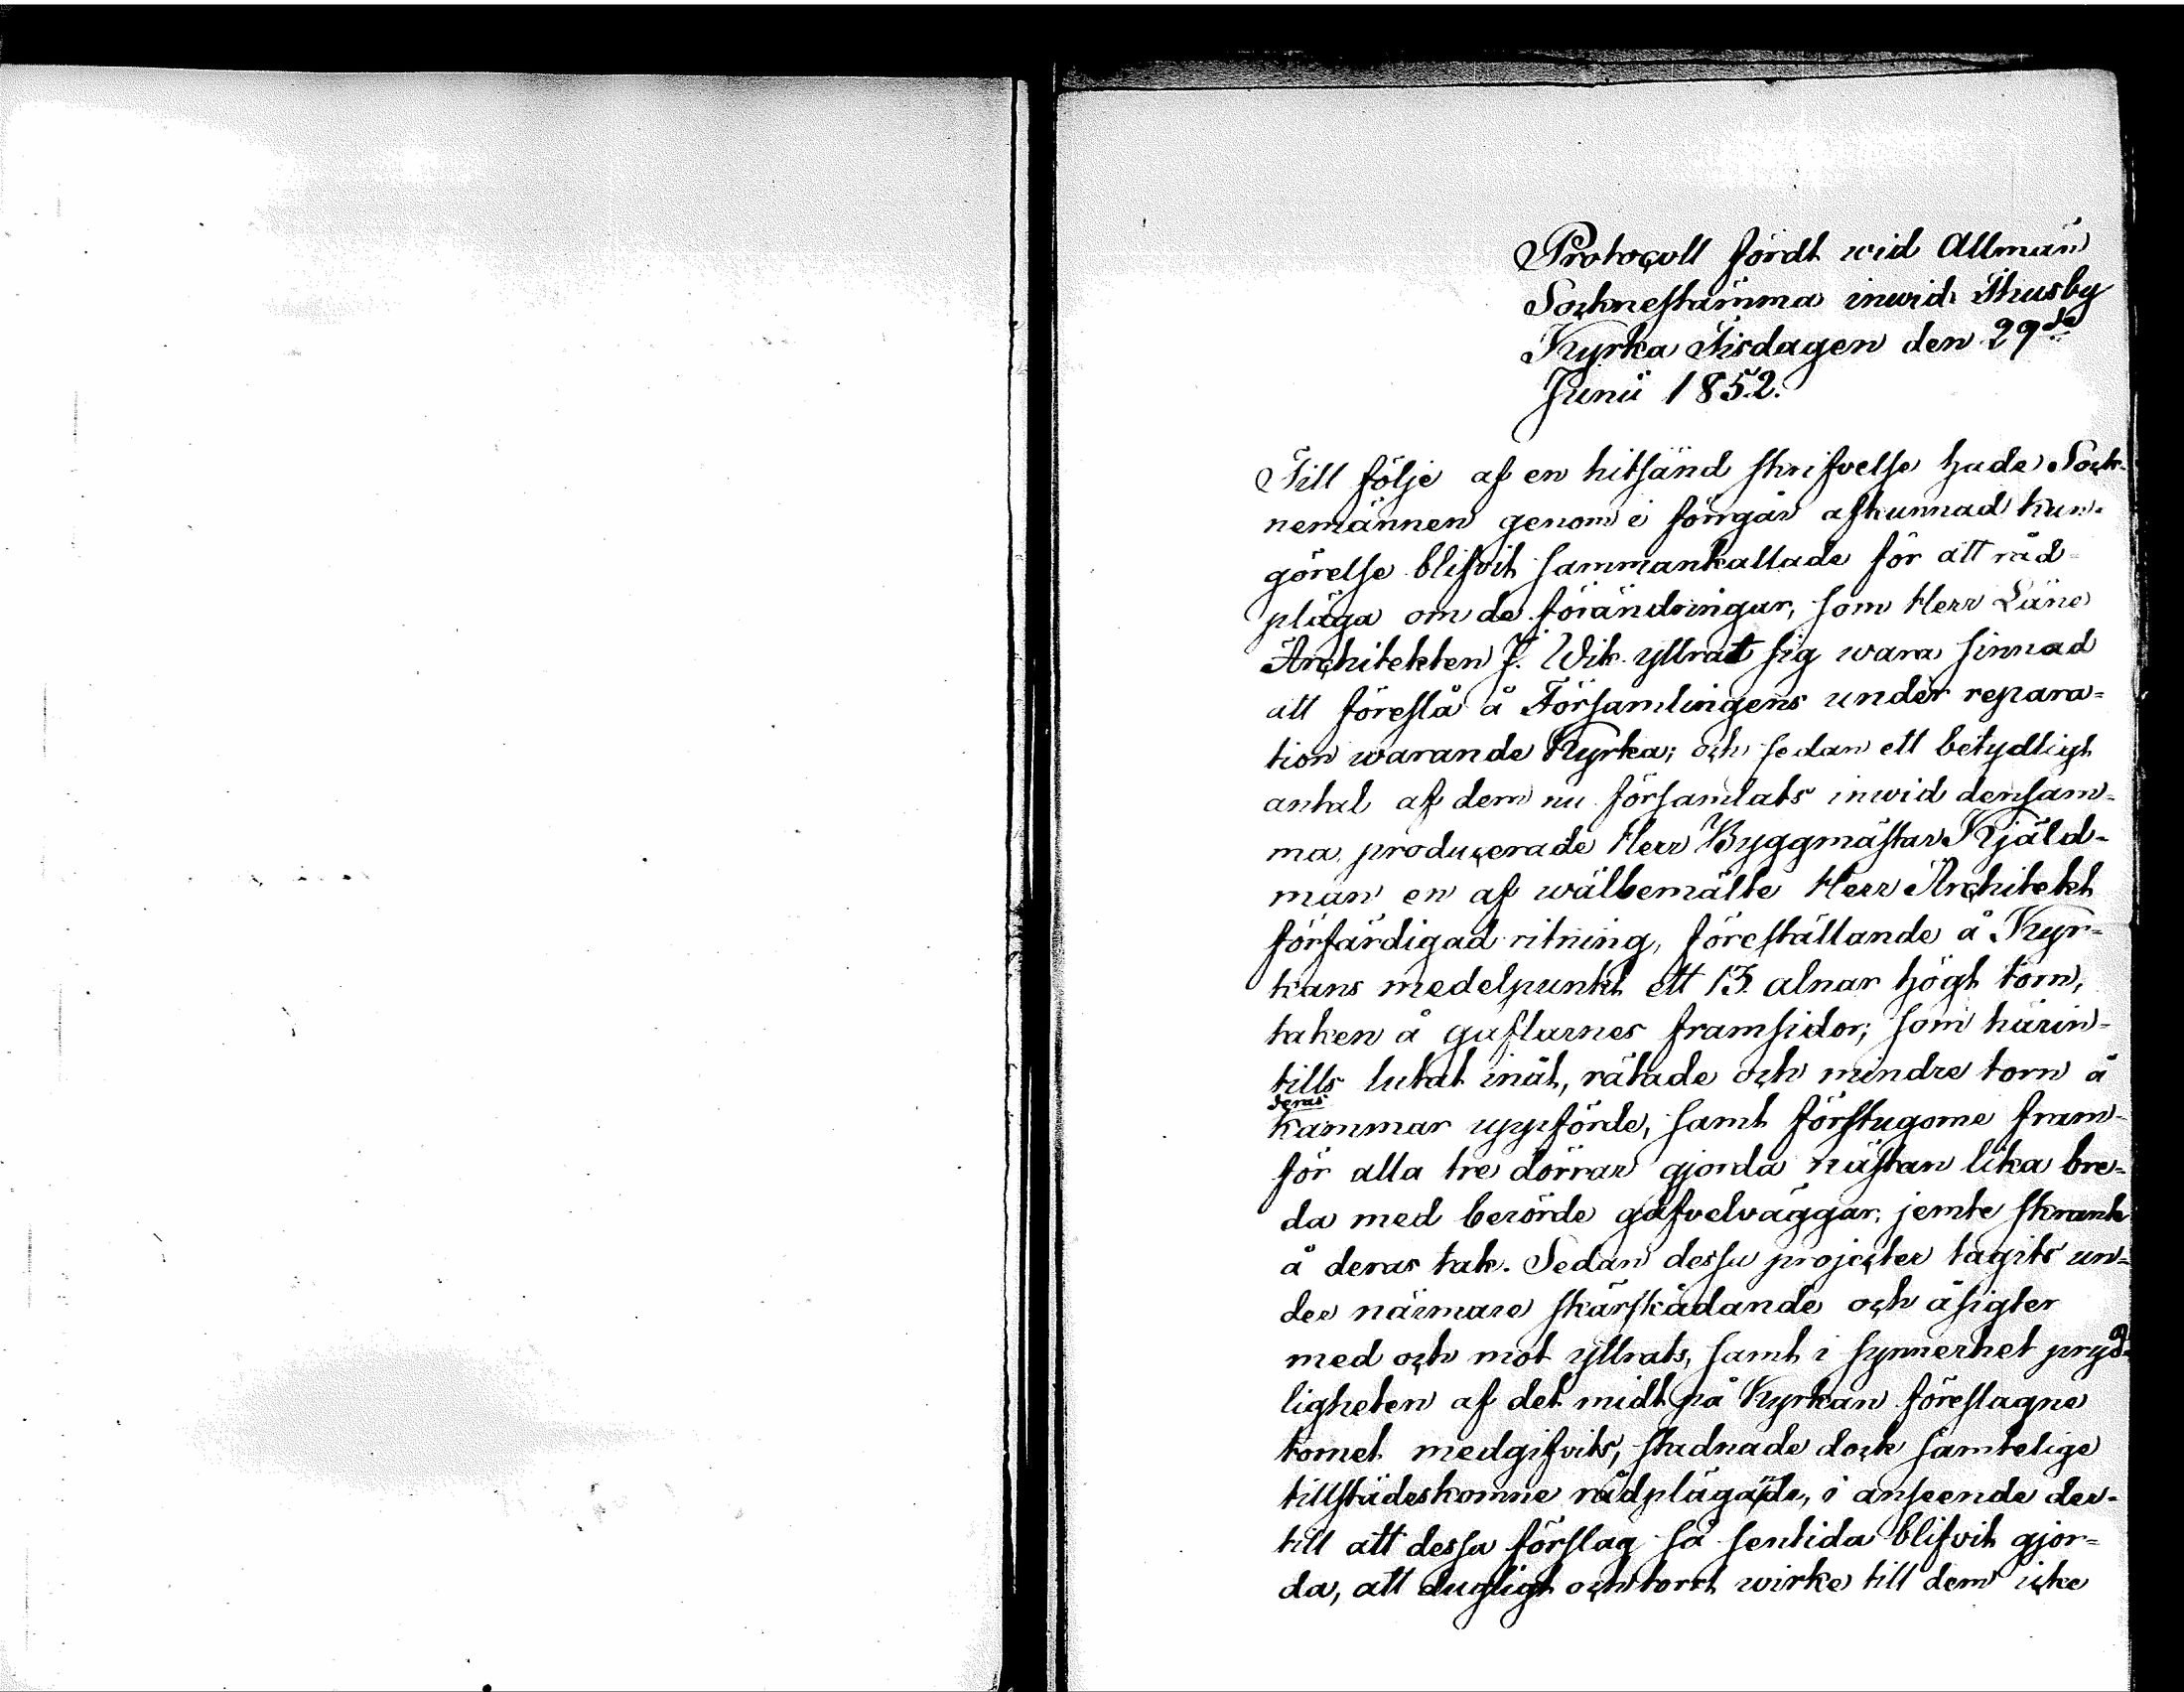 Protocoll fördt wid Allmän
Sockneſtämma inwid Thusby
Kyrka Tisdagen den 29de
Junii 1852.
Till följe af en hitſänd ſkrifvelſe hade Sock-
nemännen genom i förrgår afkunnad kun-
görelſe blifvit ſammankallade för att råd-
pläga om de förändringar, ſom Herr Läne
Architekten J. Wik yttrat ſig wara ſinnad
att föreſlå å Förſamlingens under repara=
tion warande Kyrka; och ſedan ett betydligt
antal af dem nu förſamlats inwid denſam-
ma, producerade Herr Byggmäſtar Kjäld-
man en af wälbemälte Herr Architekt
förfärdigad ritning, föreſtällande å Kyr-
kans medelpunkt ett 13 alnar högt torn,
taken å gaflarnes framſidor, ſom härin-
tills lutat inåt, rätade och mindre torn å
deras
kammar uppförde, ſamt förſtugorne fram-
för alla tre dörrar gjorda näſtan lika bre-
da med berörde gafvelväggar, jemte ſkrank
å deras tak. Sedan desſa projecter tagits un-
der närmare ſkärſkådande och åſigter
med och mot yttrats, ſamt i ſynnerhet pryd-
ligheten af det midt på Kyrkan föreſlagne
tornet medgifvits, ſtadnade dock ſamtelige
tillſtädeskomne rådplägade, i anſeende der-
till att desſa förſlag ſå ſentida blifvit gjor=
da, att dugligt och torrt wirke till dem icke